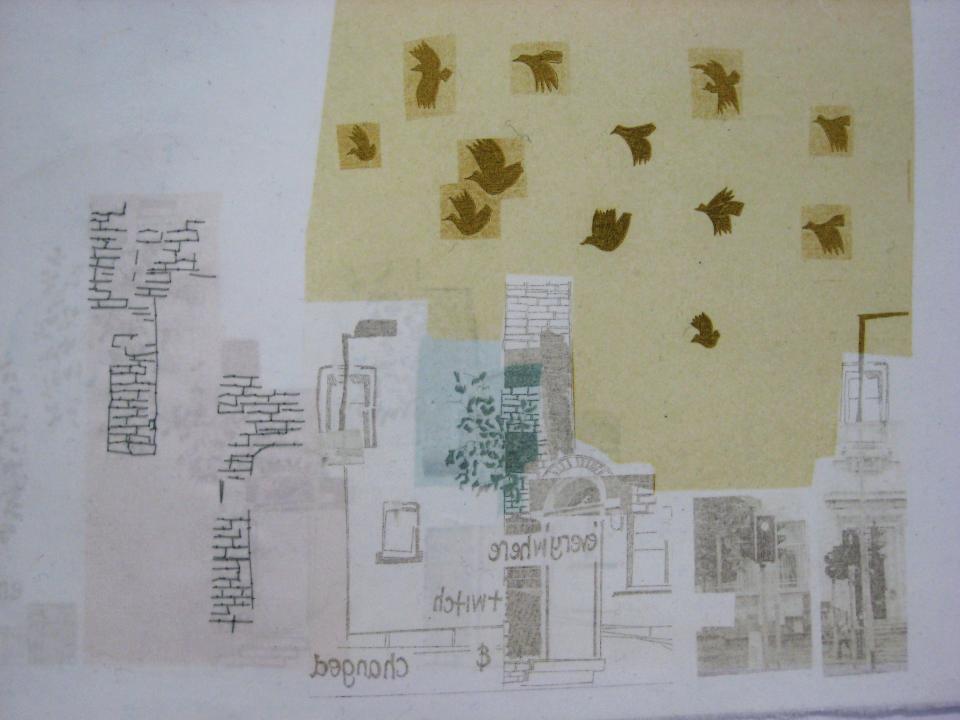 everywhere
twitch
&
changed